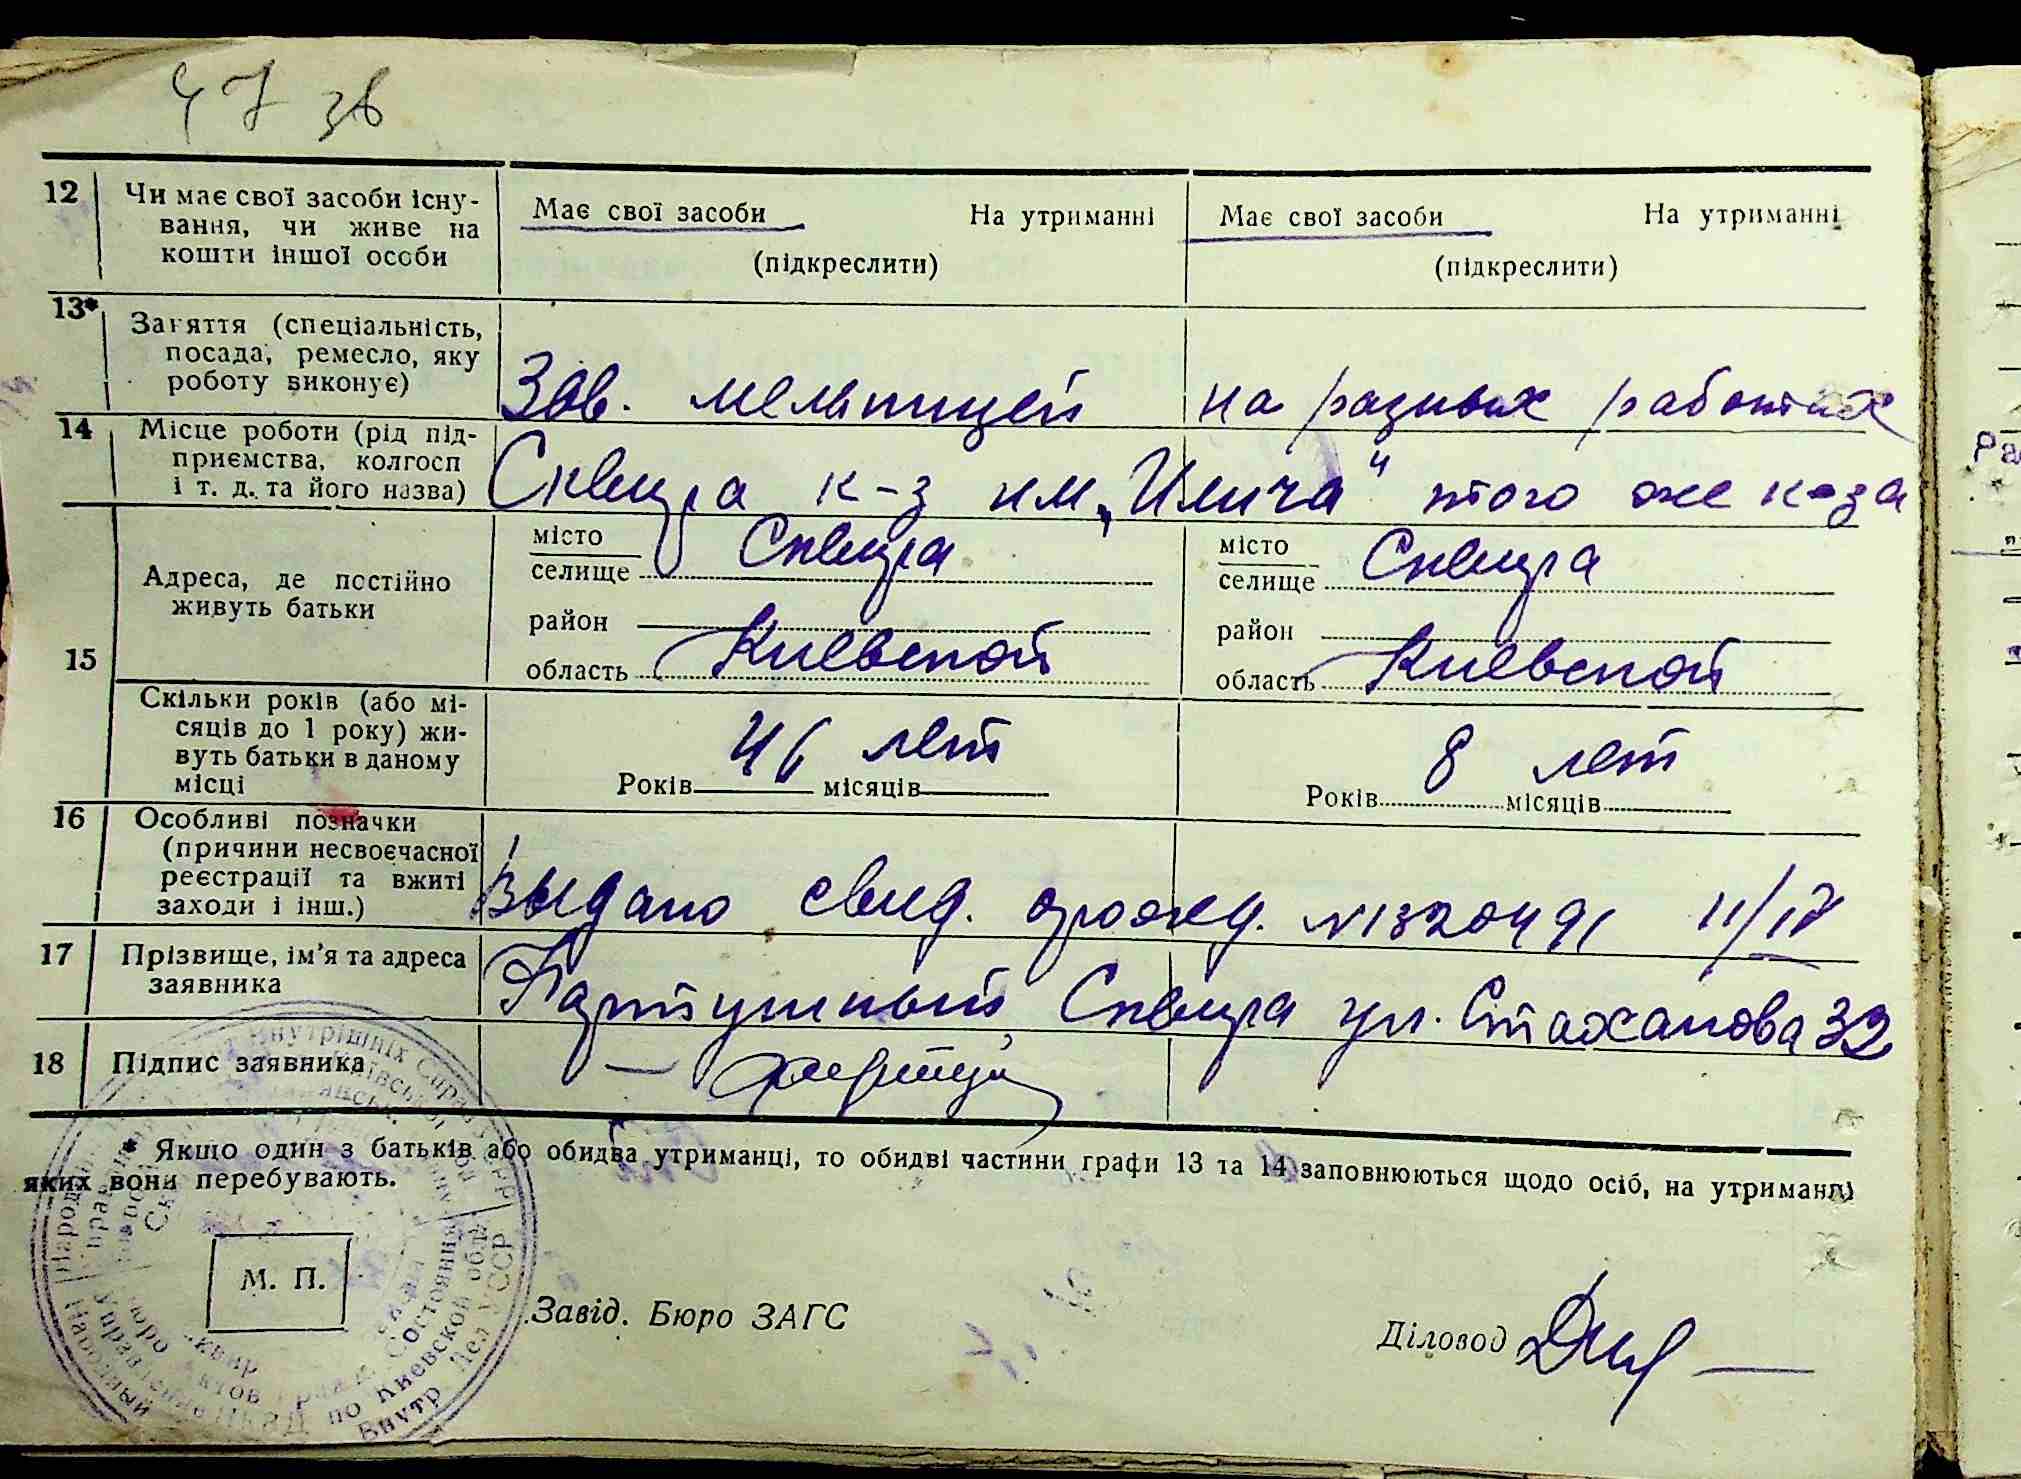 47 зв
12 Чи має свої засоби існу-
вання, чи живе на
кошти іншої особи
Має свої засоби На утриманні
(підкреслити)
Має свої засоби На утриманні
(підкреслити)
13* Заняття (спеціальність,
посада, ремесло, яку
роботу виконує)
Зав. мельницей
на разных работах
14 Місце роботи (рід під-
приємства, колгосп
і т. д. та його назва)
Сквира к-з им. „Илича"
того же к-за
15 Адреса, де постійно
живуть батьки
місто
селище Сквира
район
область Киевской
місто
селище Сквира
район
область Киевской
Скільки років (або мі-
сяців до 1 року) жи-
вуть батьки в даному
місці
46 лет
Років місяців
8 лет
Років місяців
16 Особливі позначки
(причини несвоєчасної
реєстрації та вжиті
заходи і інш.)
Выдано свид. о рожд. №1320491 11/IV
17 Прізвище, ім'я та адреса
заявника
Сквира ул. Стаханова 32
18 Підпис заявника
* Якщо один з батьків або обидва утриманці, то обидві частини графи 13 та 14 заповнюються щодо осіб, на утриманні
яких вони перебувають.
М. П.
Завід. Бюро ЗАГС
Діловод